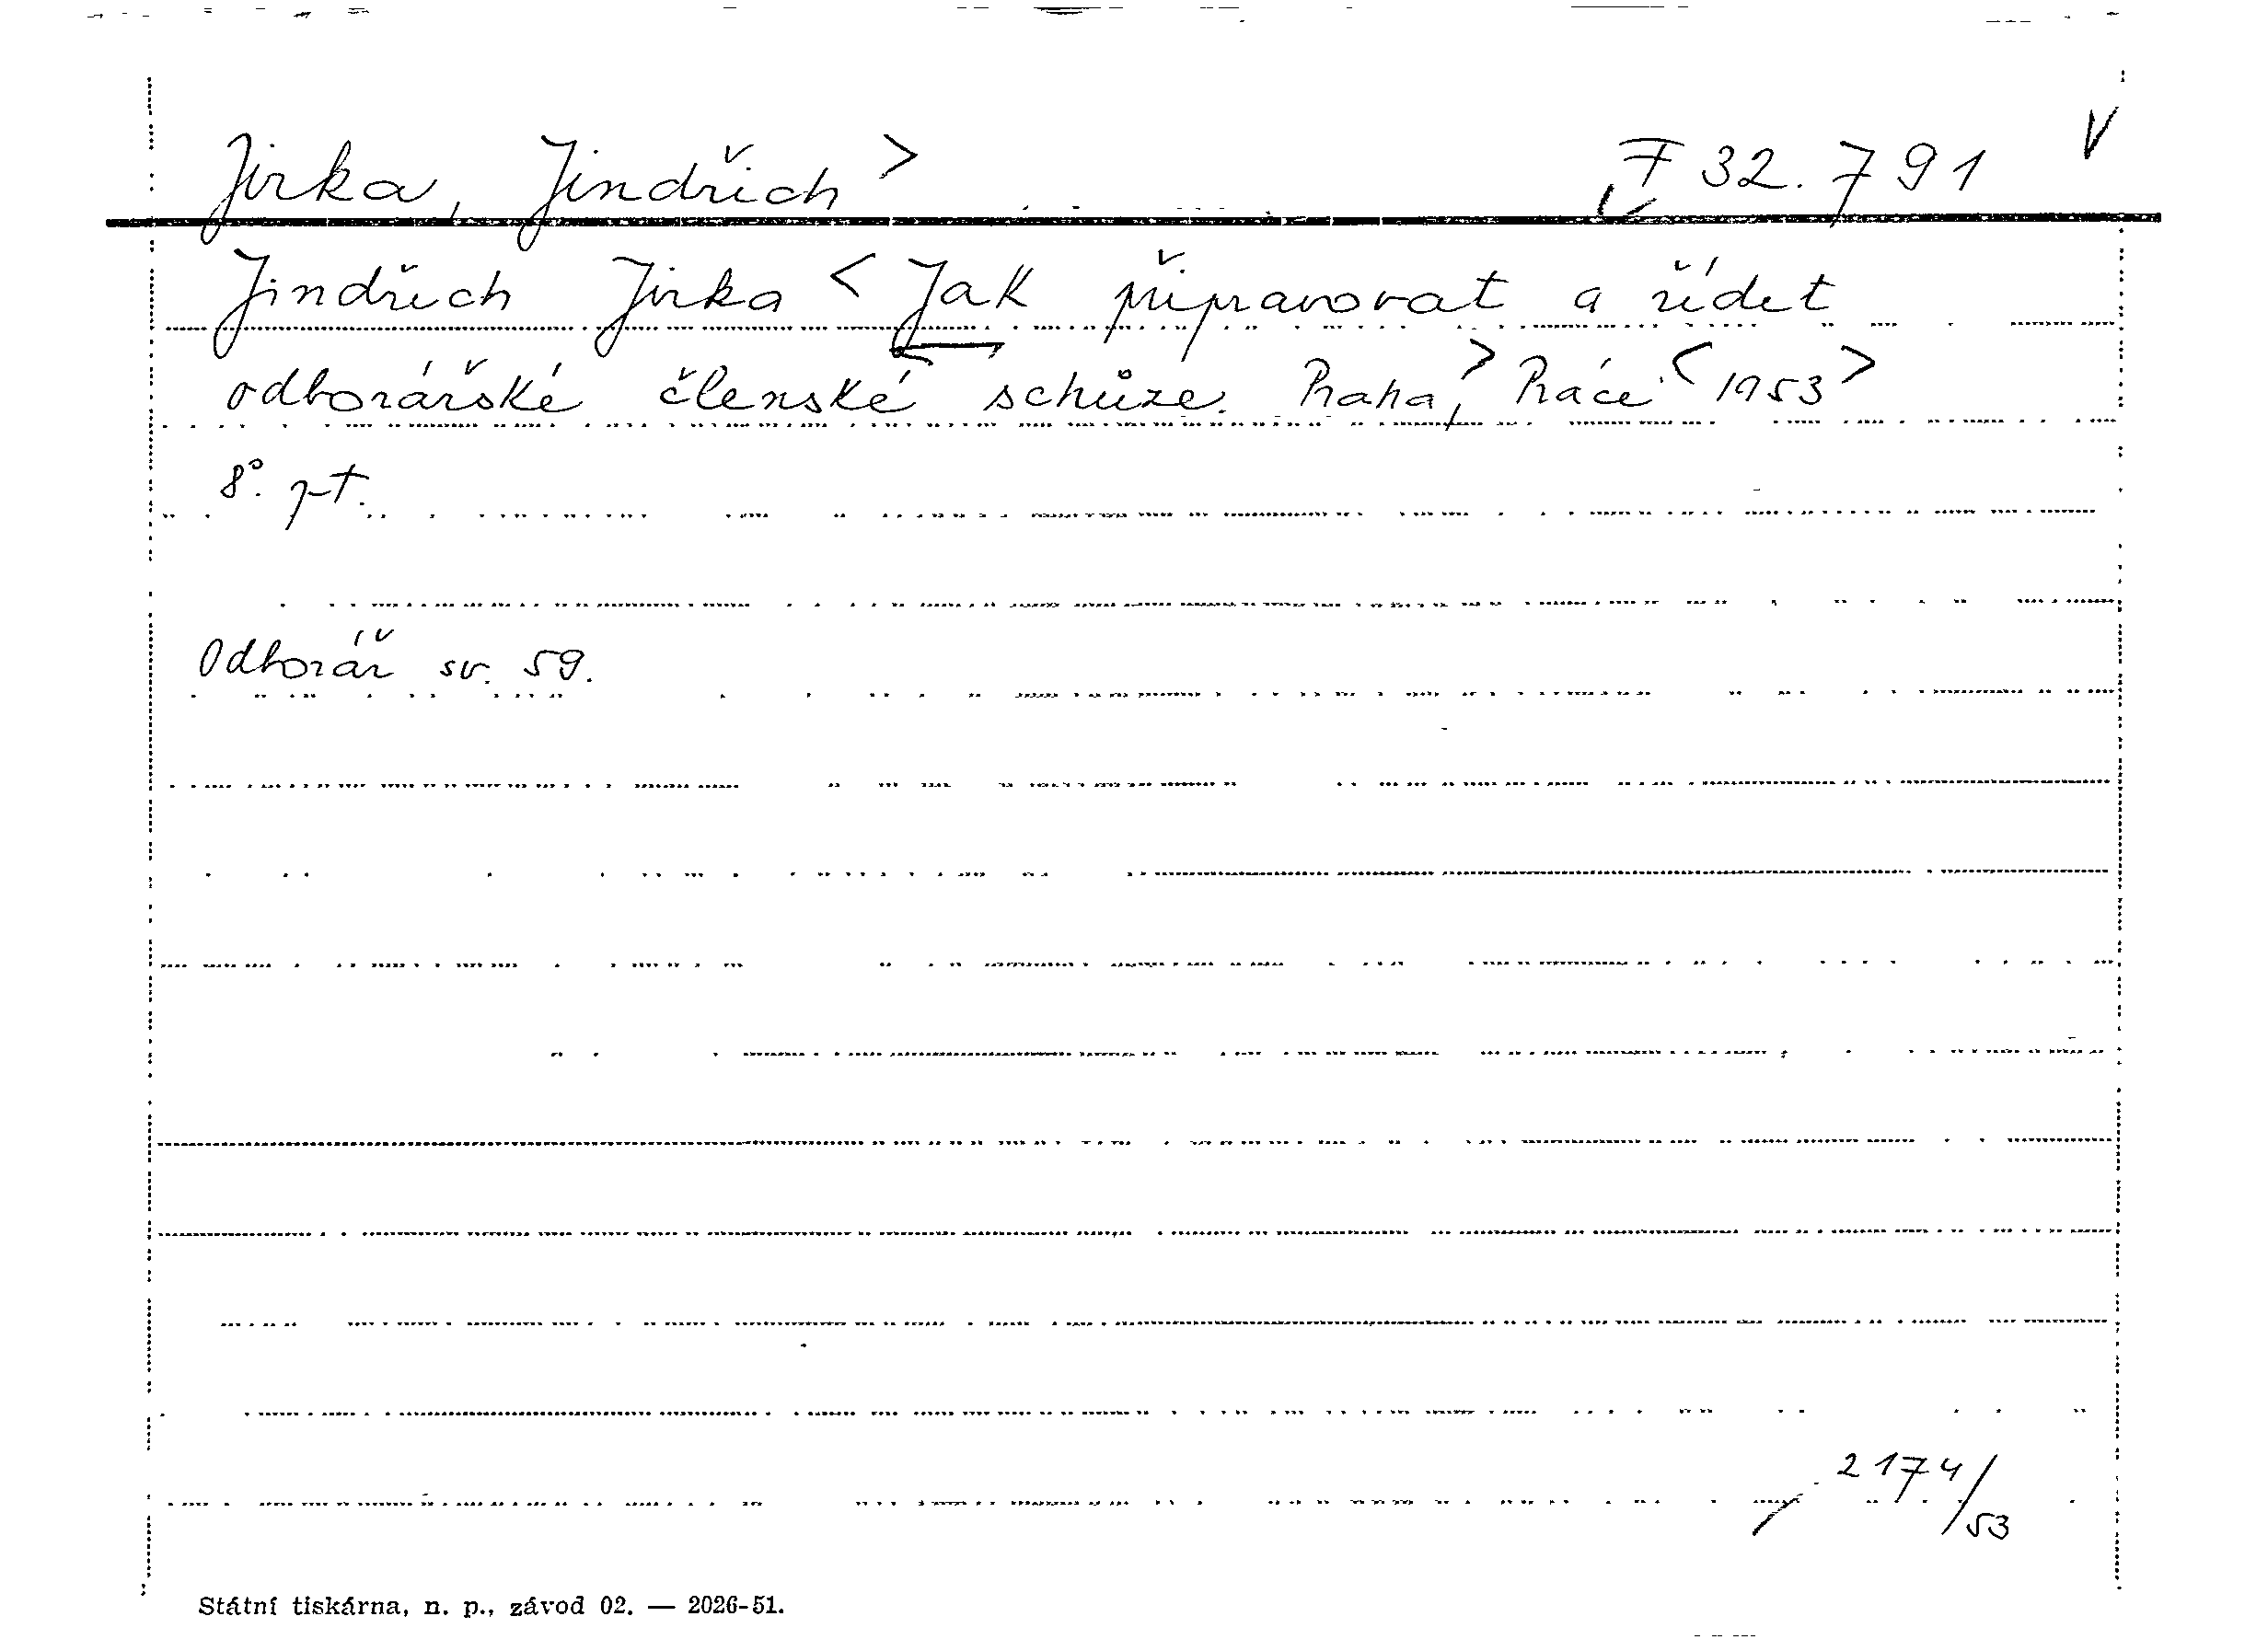 Jirka, Jindřich> F 32.791 V
Jindřich Jirka < Jak připravovat a řídit
odborářské členské schůze. Praha,> Práce <1953>
8°. pt.
Odborář sv. 59.
2174/53
Státní tiskárna, n. p., závod 02. — 2026-51.